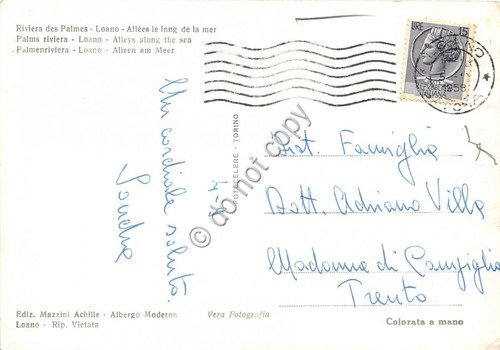 Riviera des Palmes - Loano - Allées le long de la mer
Palms riviera - Loano - Alleys along the sea
Palmenriviera - Loano - Alleen am Meer
Un cordiale saluto.
FOTOCELERE - TORINO
LIRE 15
LOANO
1958
Dist. Famiglia
Dott. Adriano Villa
Madonna di Campiglio
Trento
Ediz. Mazzini Achille - Albergo Moderno
Loano - Rip. Vietata
Vera Fotografia
Colorata a mano
© do not copy